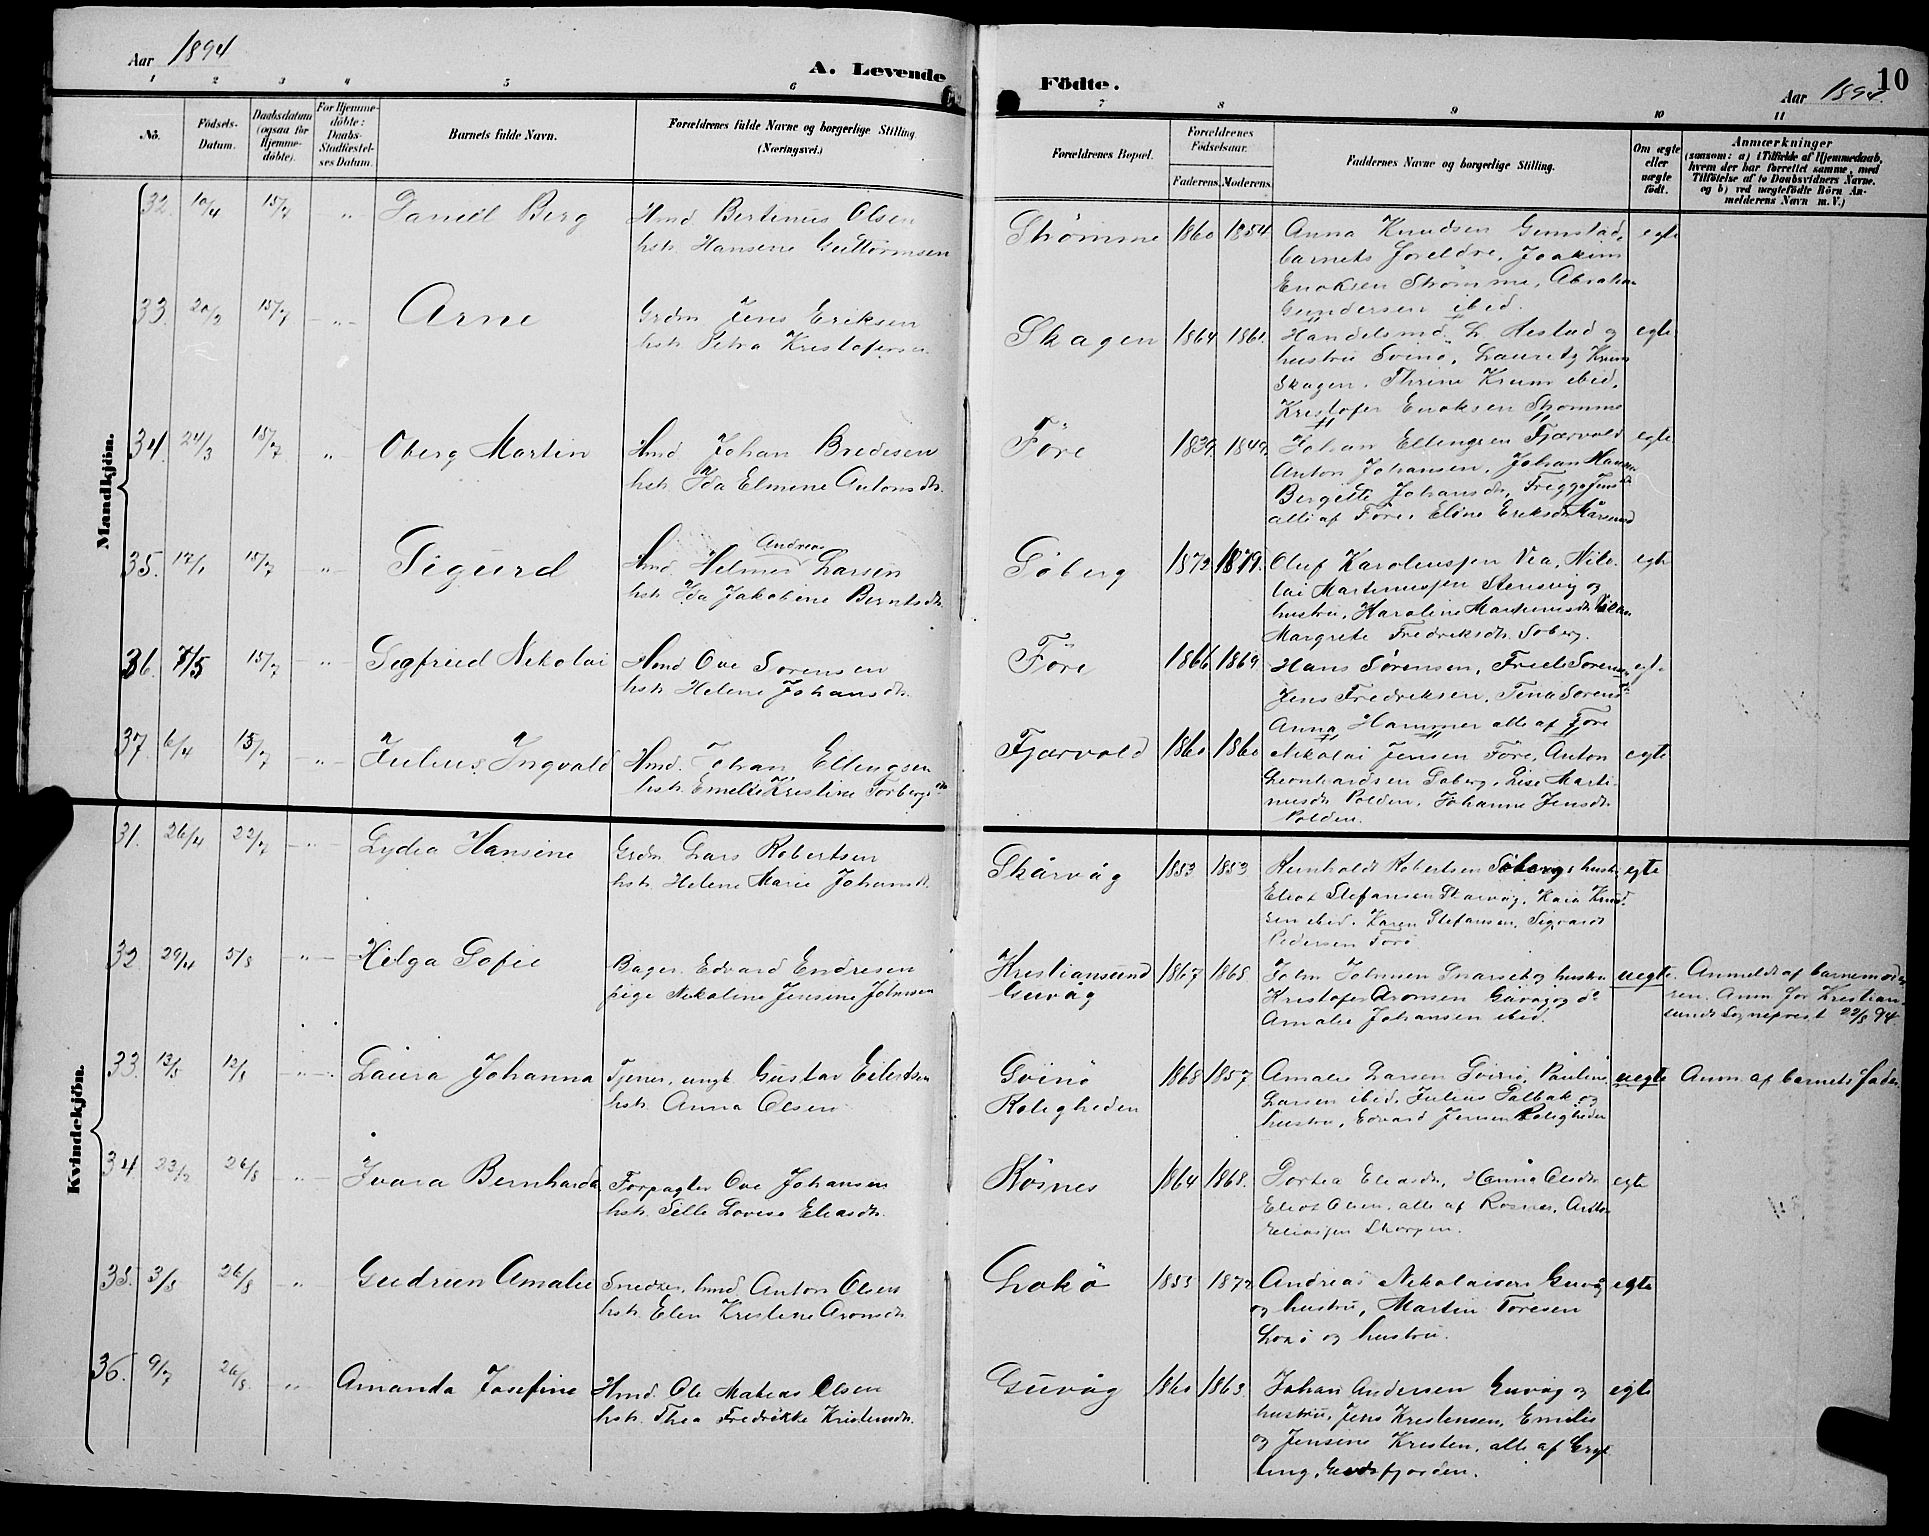 Aar 1894
A. Levende
Födte.
Aar 1894.
10
1 2 3 4 5 6 7 8 9 10 11
No.
Födsels-Datum.
Daabsdatum (ogsaa for Hjemmedöbte).
For Hjemmedöbte: Daabs-Stadfæstelses Datum.
Barnets fulde Navn.
Forældrenes fulde Navne og borgerlige Stilling.
(Næringsvei.)
Forældrenes Bopæl.
Forældrenes Födselsaar.
Faderens. Moderens.
Faddernes Navne og borgerlige Stilling.
Om ægte eller uægte födt.
Anmærkninger
(saasom: a) i Tilfælde af Hjemmedaab,
hvem der har forrettet samme, med
Tilföielse af to Daabsvidners Navne,
og b) ved uægtefödte Börn An-
melderens Navn m. V.)
Mandkjön.
32. 10/4 15/7 " Daniel Berg
Hmd Bertinus Olsen
hstr. Hansine Guttormsen
Strømme 1860 1854
Anna Knudsen
barnets foreldre, Joakim
Enoksen Strømme, Abraham
Gundersen ibid.
egte
33. 20/3 15/7 " Arne
Grdm Jens Eriksen
hstr. Petra
Skagen 1864 1861
Handelsmd. L. og
hustru Svinø, Lauritz
Skagen, Thrine Krum ibid,
Kristofer Enoksen Strømme
egte
34. 24/3 15/7 " Oberg Martin
Hmd Johan Bredesen
hstr. Ida Elmine Antonsdtr.
Före 1839 1849
Johan Ellingsen Fjærvold
Anton Johansen, Johan
Bergitte Johansdtr,
alle af Före, Eline Eriksdtr
egte
35. 17/1 15/7 " Sigurd
Andreas
Hmd Helmer Larsen
hstr. Ida Jakobine Berntsdtr.
Söberg 1872 1879.
Oluf Karoliussen Vea, Niko-
lai Martinussen Stensvig og
hustru, Karoline Martinusdtr
Margrete Fredriksdtr. Soberg.
egte
36. 7/5 15/7 " Sigfried Nikolai
Hmd Ove Sorensen
hstr. Helene Johansdtr.
Före 1866 1869.
Hans Sörensen,
Jens Fredriksen, Tina Sorens
Anna Hammer alle af Fore
egt.
37. 6/4 15/7 " Julius Ingvald
Hmd. Johan Ellingsen
hstr. Emelie Kristine Torbergsdtr
Fjærvold 1860 1860
Nikolai Jensen Före, Anton
Leonhardsen Soberg, Lise Marti-
nusdtr Polden, Johanne Jensdtr.
Polden.
egte
Kvindekjön.
31. 26/4 22/7 " Lydia Hansine
Grdm Lars Robertsen
hstr. Helene Marie Johansdtr.
Skårvåg 1853 1853
Reinholdt Robertsen Söberg & hustr
Eliot Stefansen Skarvåg, Kaia Knud-
sen ibid. Karen Stefansen, Sigvardt
Pedersen Före
egte
32. 29/4 5/8 " Helga Sofie
Bager Edvard Endresen
pige Nikoline Jensine Johnsen
Kristiansund
Guvåg
1867 1868.
John Johnsen Snarset og hustru
Kristofer Aronsen Guvåg og do
Amalie Johansen ibid.
uegte.
Anmeldt af barnemode-
ren. Anm for Kristian-
sunds Sogneprest 22/8 94.
33. 13/5 12/8 " Laura Johanna
Tjener, ungk Gustav Eilertsen
hstr. Anna Olsen
Svinö
Roligheden
1868 1857
Amalie Larsen Svinö, Pauline
Larsen ibid, Julius Palbak og
hustru, Edvard Jensen Roligheden
uegte
Anm. af barnets fader
34. 23/2 26/8 " Ivara Bernharda
Forpagter Ove Johansen
hstr. Sille Lovise Eliasdtr.
Rösnes 1864 1868.
Dortea Eliasdtr, Hanna Olsdtr
Eliot Olsen, alle af Rosnes,
Eliassen Skorpen.
egte
35. 3/5 26/8 " Gudrun Amalie
Snedker, hmd Anton Olsen
hstr. Elen Kristine Aronsdtr.
Lokö 1853 1872
Andreas Nikolaisen Guvåg
og hustru, Martin Toresen
Lokö og hustru.
egte
36. 9/7 26/8. " Amanda Josefine
Hmd. Ole Matias Olsen
hstr. Thea Fredrikke Kristensdtr.
Guvåg 1860 1863.
Johan Andersen Guvåg og
hustru, Jens Kristensen, Emilie
og Jensine Kristen, alle af Gryt-
ting, Gudsfjorden.
egte